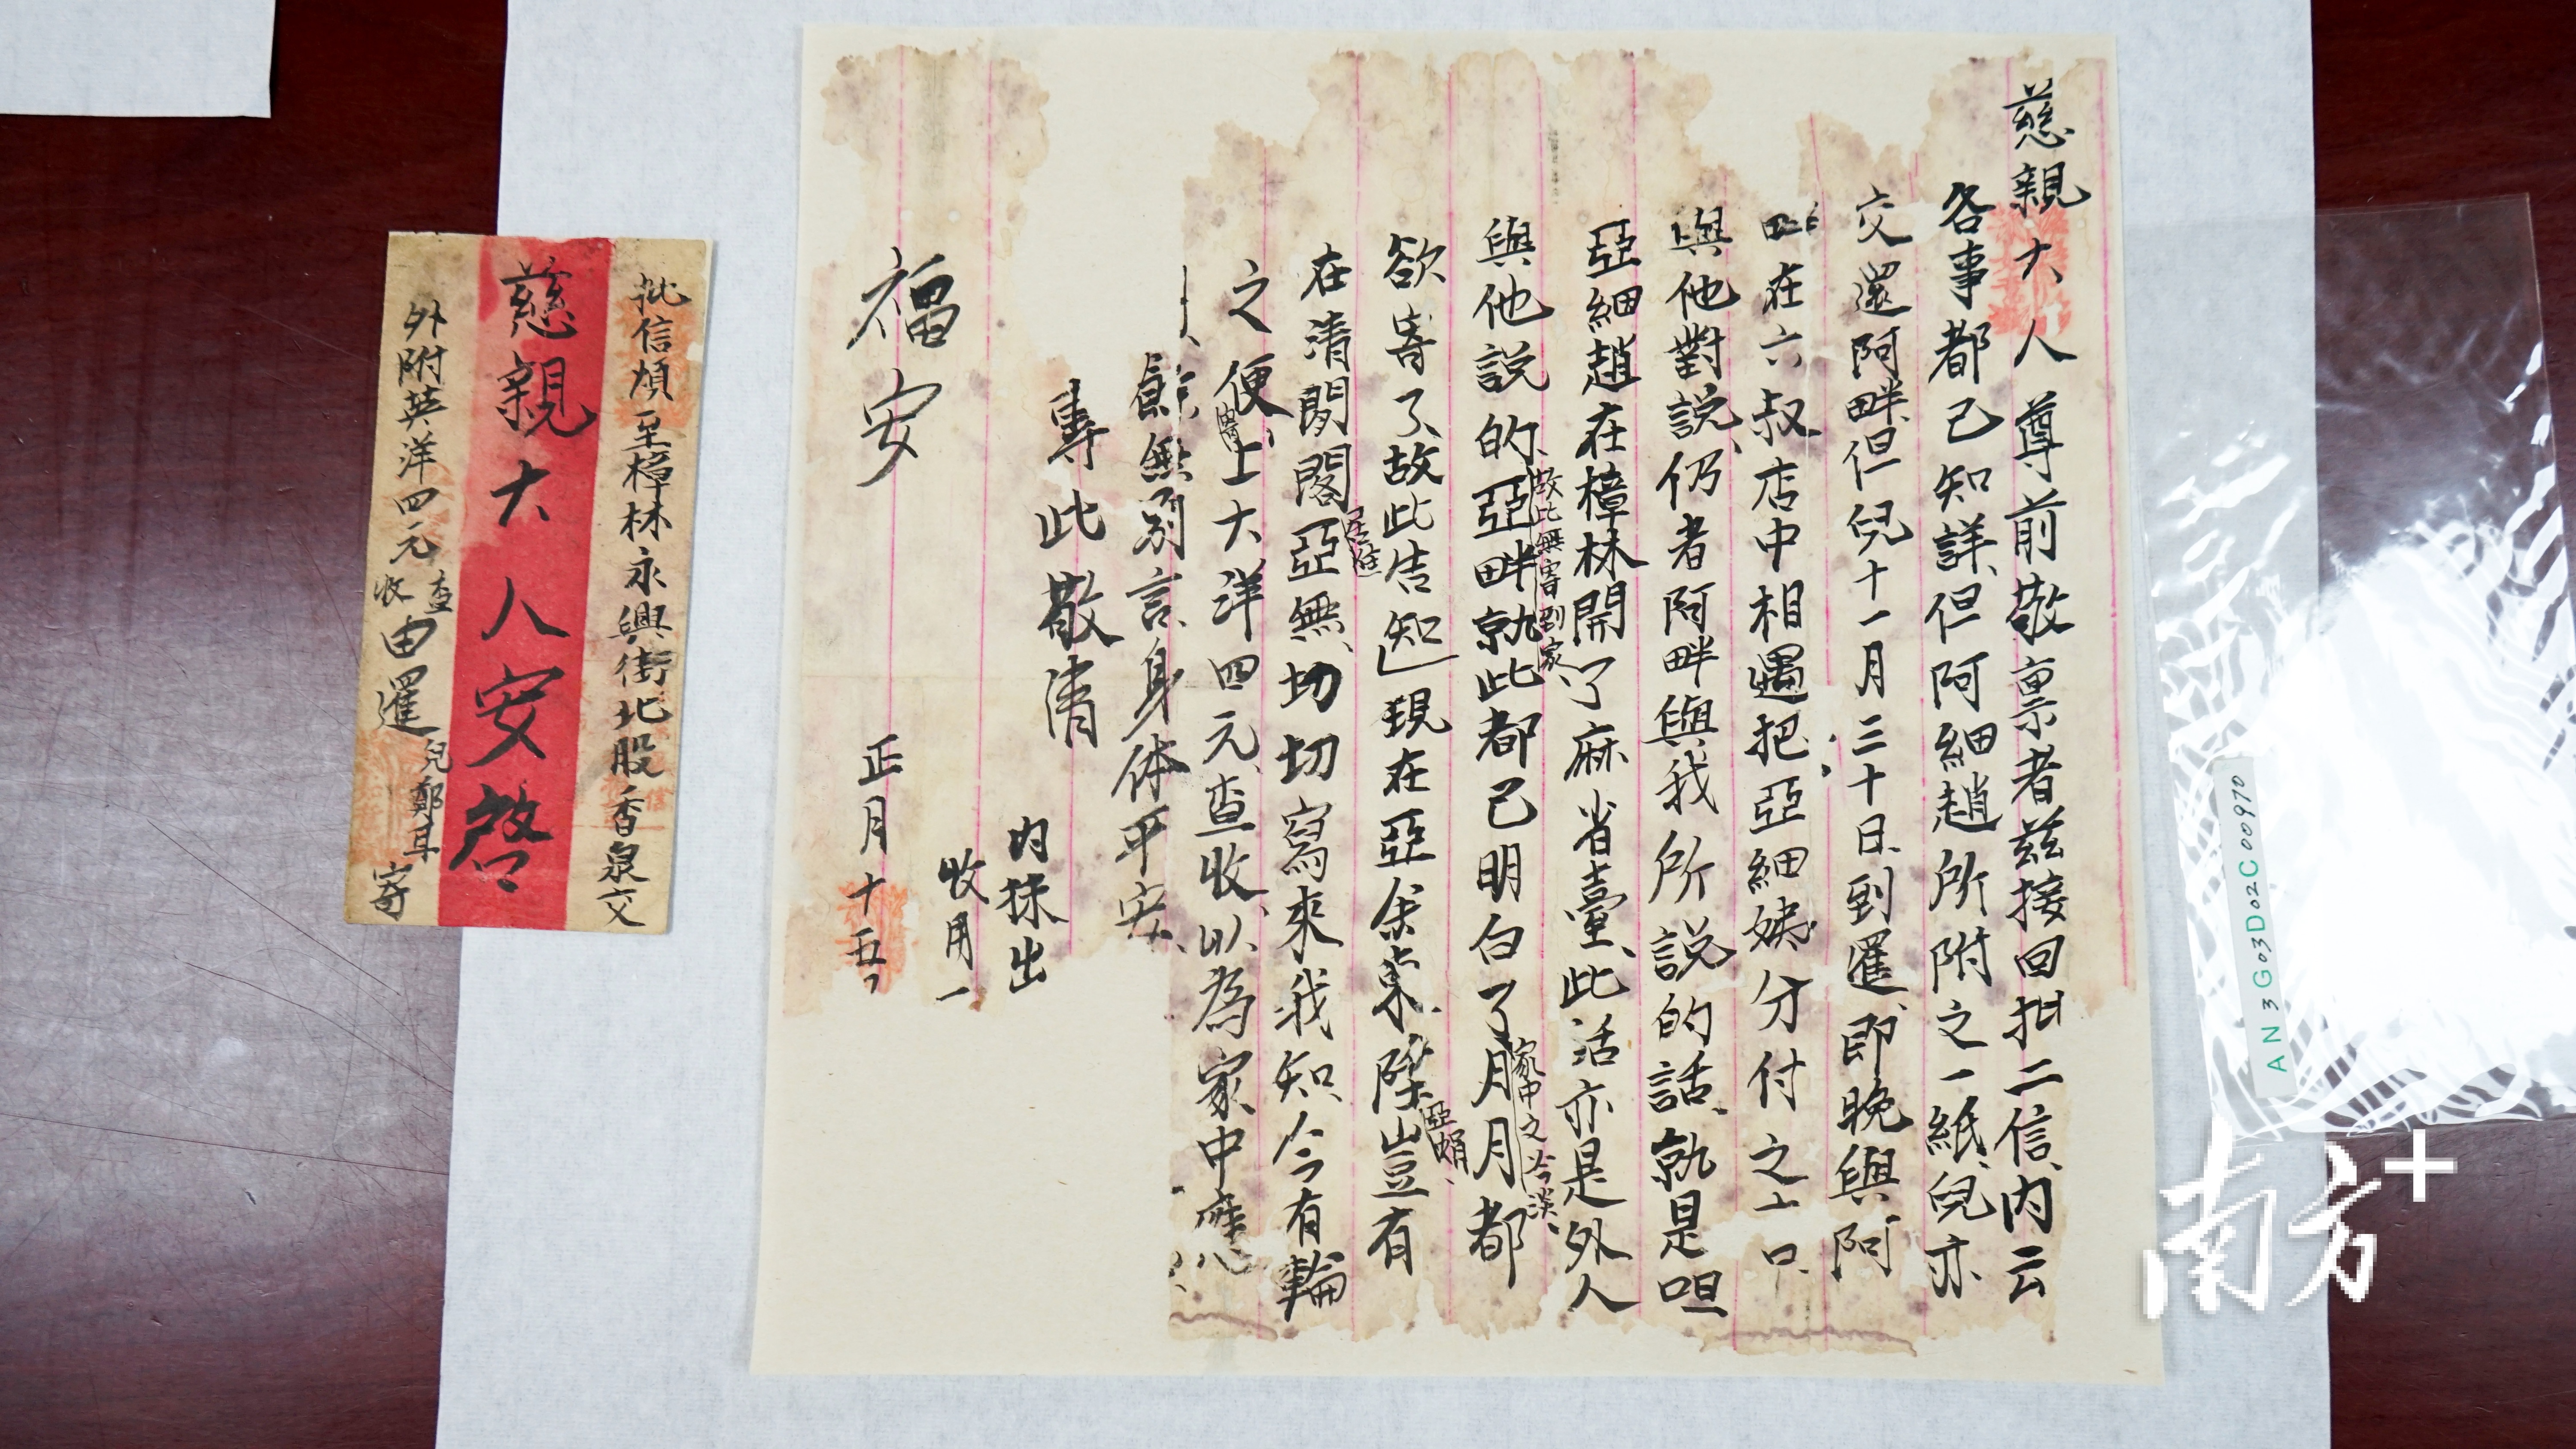 慈親大人尊前敬禀者茲接回批二信、内云
各事都已知詳、但阿細趙所附之一紙、兒亦
交還阿畔、但兒十一月三十日、到暹、即晚與阿
畔在六叔店中相遇、把亞細姨分付之口、
與他對説、仍者阿畔與我所説的話、孰是呾
亞細趙在樟林開了麻省臺、此活亦是外人
與他説的、亞畔孰此都已明白了月月都
故此無寄到家、
家中之冷淡、
欲寄了、故此告知 現在亞余 豈有
亞娟、
在清閑閣亞無、切切寫來我知、今有輪
之便、上大洋四元、查收、以為家中應
餘無别言、身体平安、
專此敬清
福安
内抹出
收用一
正月十五
批信煩至樟林永興街北股香泉交
慈親大人安啓
外附英洋四元查收由暹兒鄭耳寄
AN3G03D02C000970
南方+